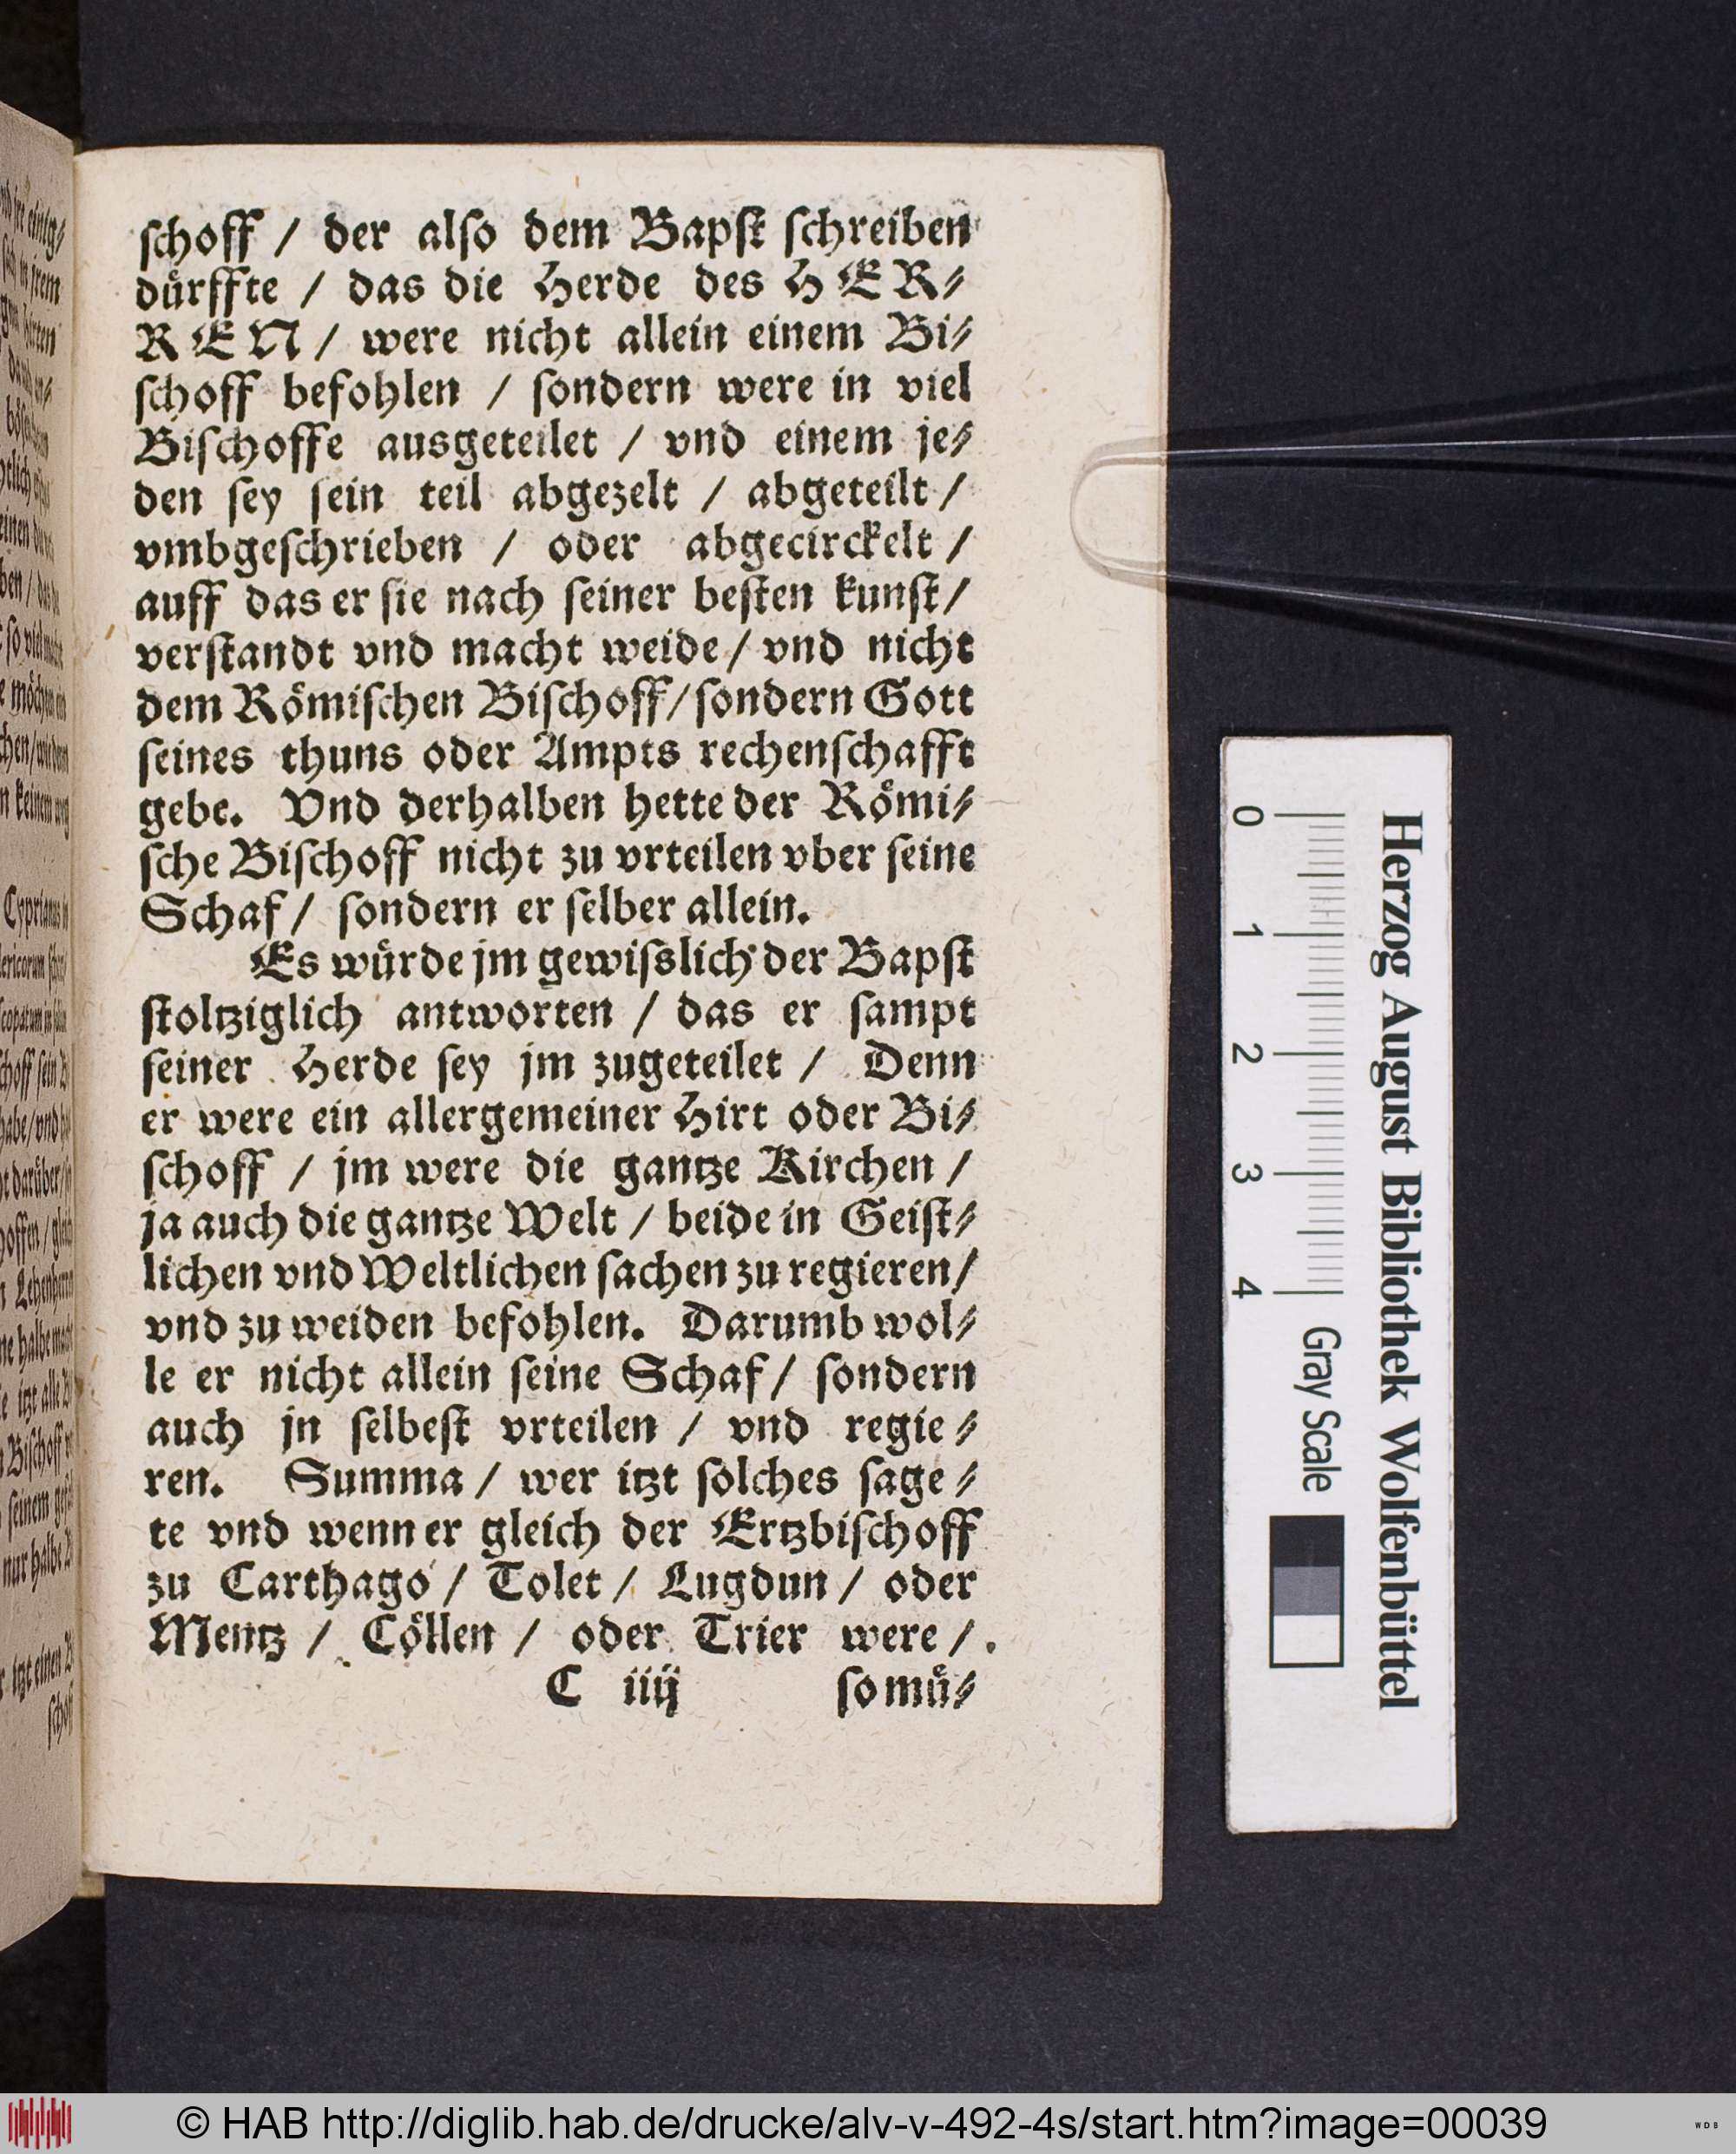 ſchoff / der alſo dem Bapſt ſchreiben
duͤrffte / das die Herde des HER⸗
REN / were nicht allein einem Bi⸗
ſchoff befohlen / ſondern were in viel
Biſchoffe ausgeteilet / vnd einem je⸗
den ſey ſein teil abgezelt / abgeteilt /
vmbgeſchrieben / oder abgecirckelt /
auff das er ſie nach ſeiner beſten kunſt /
verſtandt vnd macht weide / vnd nicht
dem Roͤmiſchen Biſchoff / ſondern Gott
ſeines thuns oder Ampts rechenſchafft
gebe. Vnd derhalben hette der Roͤmi⸗
ſche Biſchoff nicht zu vrteilen vber ſeine
Schaf / ſondern er ſelber allein.
Es wuͤrde jm gewiſslich der Bapſt
ſtoltziglich antworten / das er ſampt
ſeiner Herde ſey jm zugeteilet / Denn
er were ein allergemeiner Hirt oder Bi⸗
ſchoff / jm were die gantze Kirchen /
ja auch die gantze Welt / beide in Geiſt⸗
lichen vnd Weltlichen ſachen zu regieren /
vnd zu weiden befohlen. Darumb wol⸗
le er nicht allein ſeine Schaf / ſondern
auch jn ſelbeſt vrteilen / vnd regie⸗
ren. Summa / wer itzt ſolches ſage⸗
te vnd wenn er gleich der Ertzbiſchoff
zu Carthago / Tolet / Lugdun / oder
Mentz / Coͤllen / oder Trier were /
C iiij ſo muͤ⸗
Herzog August Bibliothek Wolfenbüttel
0 1 2 3 4 Gray Scale
© HAB http://diglib.hab.de/drucke/alv-v-492-4s/start.htm?image=00039
WDB